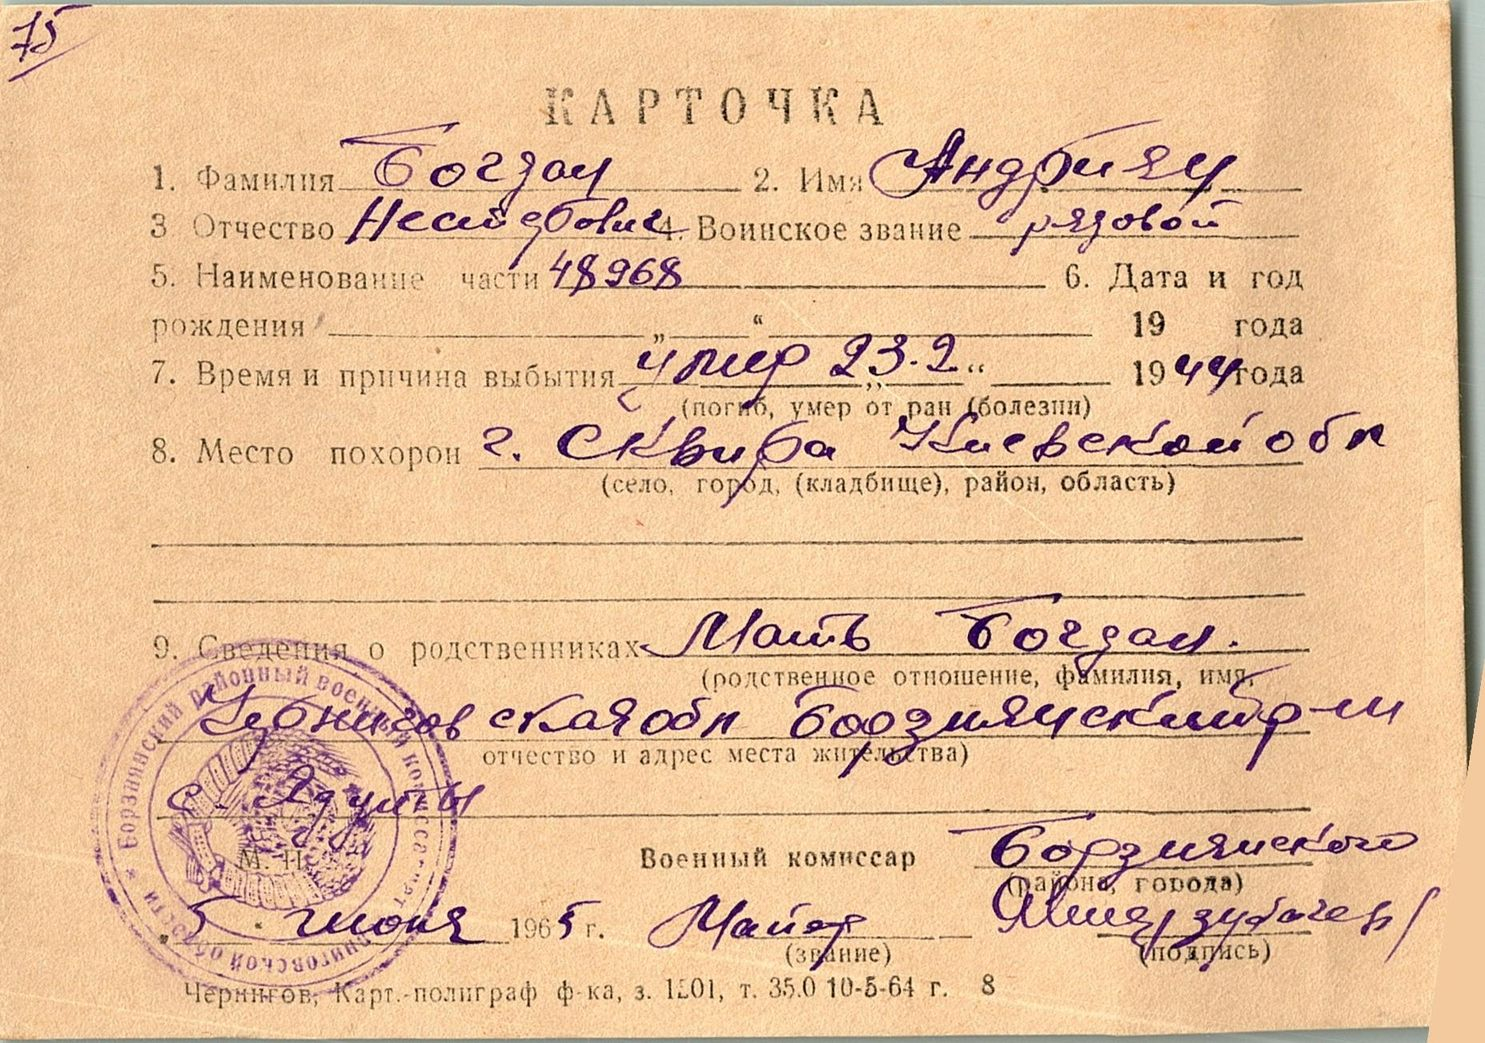 75
КАРТОЧКА
1. Фамилия Богдан 2. Имя Андриян
3 Отчество 4. Воинское звание рядовой
5. Наименование части 48968 6. Дата и год
рождения „ “ 19 года
7. Время и причина выбытия умер 23.2 „ “ 1944 года
(погиб, умер от ран (болезни)
8. Место похорон г. Сквира Киевской обл
(село, город, (кладбище), район, область)
9. Сведения о родственниках Мать Богдан.
(родственное отношение, фамилия, имя,
Черниговская обл Борзнянский р-н
отчество и адрес места жительства)
с. Ядуты
М. П.
Военный комиссар Борзнянского
(района, города)
„5 “ июня 1965 г. Майор
(звание) (подпись)
Чернигов, Карт.-полиграф ф-ка, з. 1201, т. 35.0 10-5-64 г. 8
Борзнянский районный военный комиссариат Черниговской области